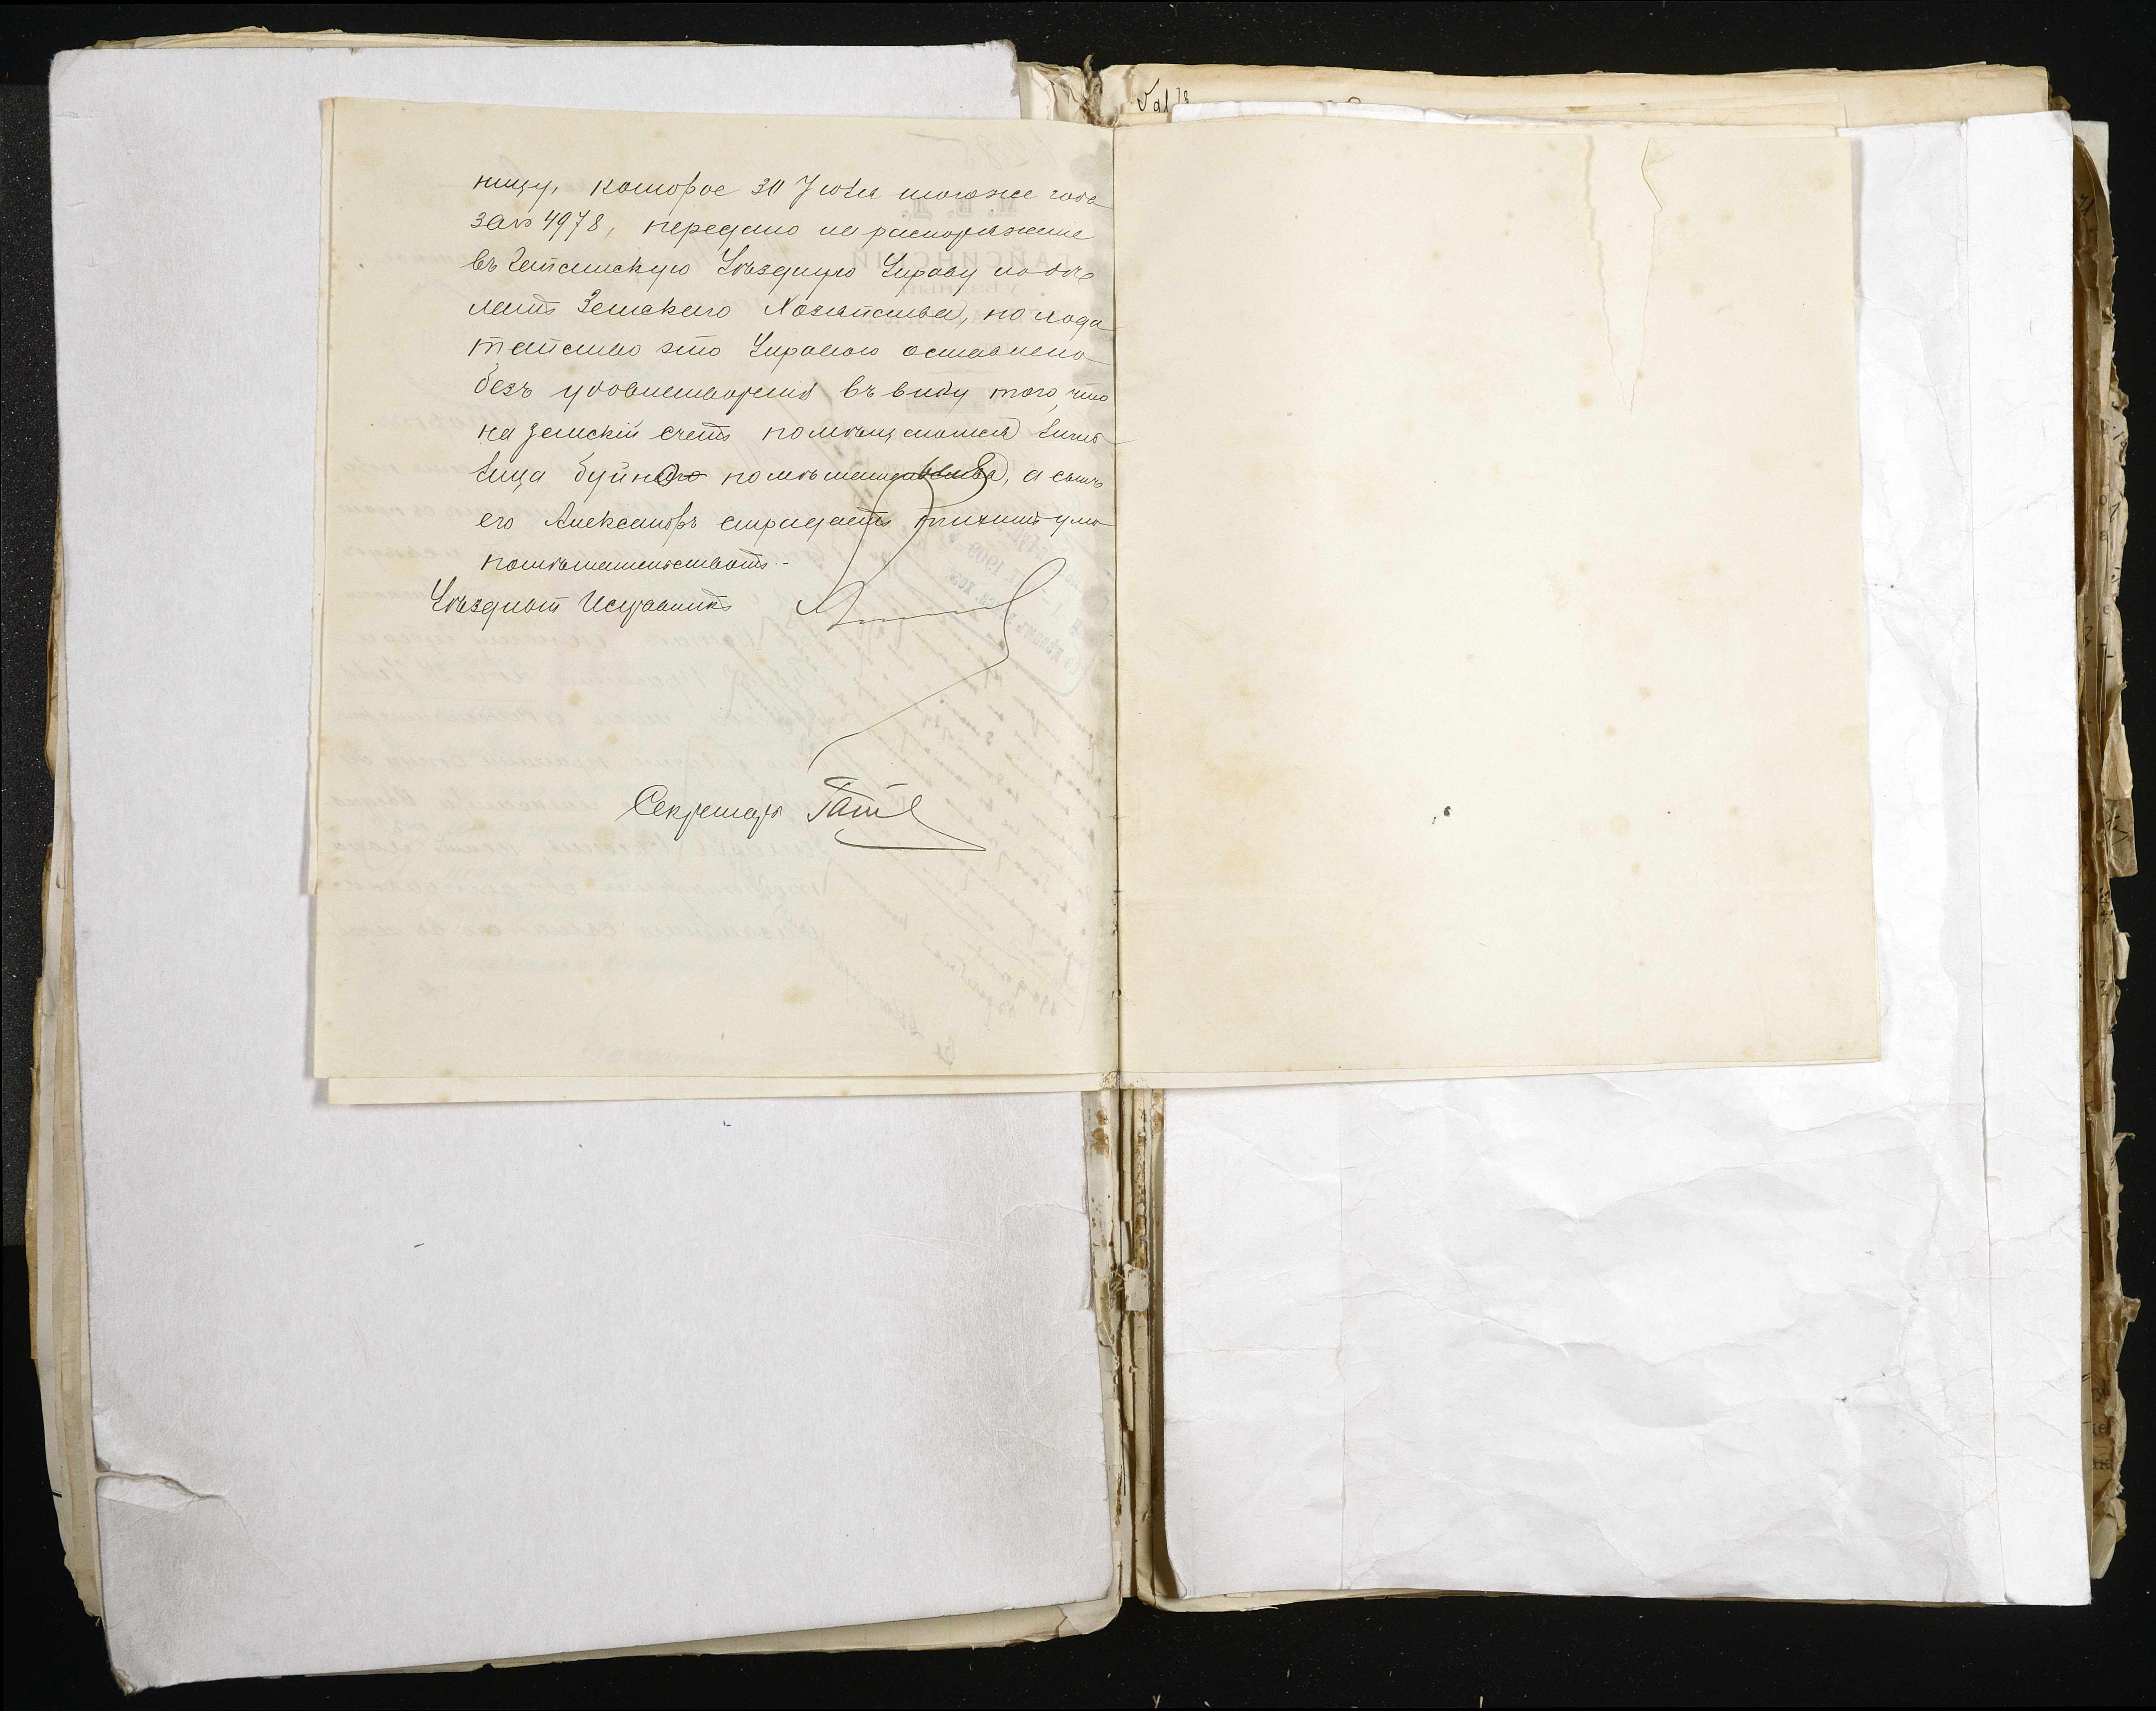 Val 78
ницу, которое 30 Июля тогоже года
за № 4978, передано на распоряжение
въ Гайсинскую Уѣздную Управу по дѣ
ламъ Земскаго Хозяйства, но хода
тайство это Управою оставлено
безъ удовлетворенія въ виду того, что
на земскій счетъ помѣщаются лишь
лица буйно помѣшанныя, а сынъ
его Александръ страдаетъ тихимъ умо
помѣшательствомъ.-
Уѣздный Исправникъ
Секретарь